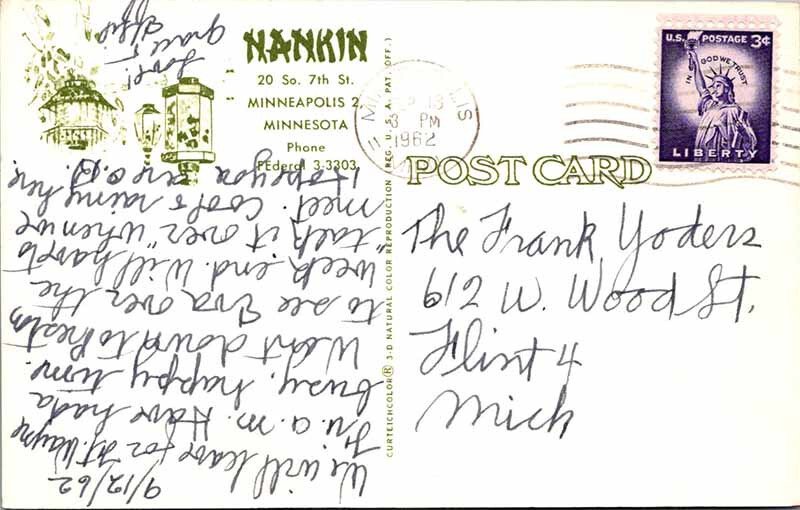 NANKIN
20 So. 7th St.
MINNEAPOLIS 2,
MINNESOTA
Phone
FEderal 3-3303
CURTEICHCOLOR® 3-D NATURAL COLOR REPRODUCTION (REG. U.S.A. PAT. OFF.)
MINNEAPOLIS
SEP 13
3 PM
1962
U.S. POSTAGE 3¢
IN GOD WE TRUST
LIBERTY
POST CARD
The Frank Yoders
612 W. Wood St.
Flint 4
Mich
9/12/62
We will leave for Ft. Wayne
Fri. a.m. Have had a
busy, happy time.
Went down to
to see Eva over the
week end. Will have to
"talk it over" when we
meet. Cool & rainy here.
Hope you are O.K.
Love!
Grace &